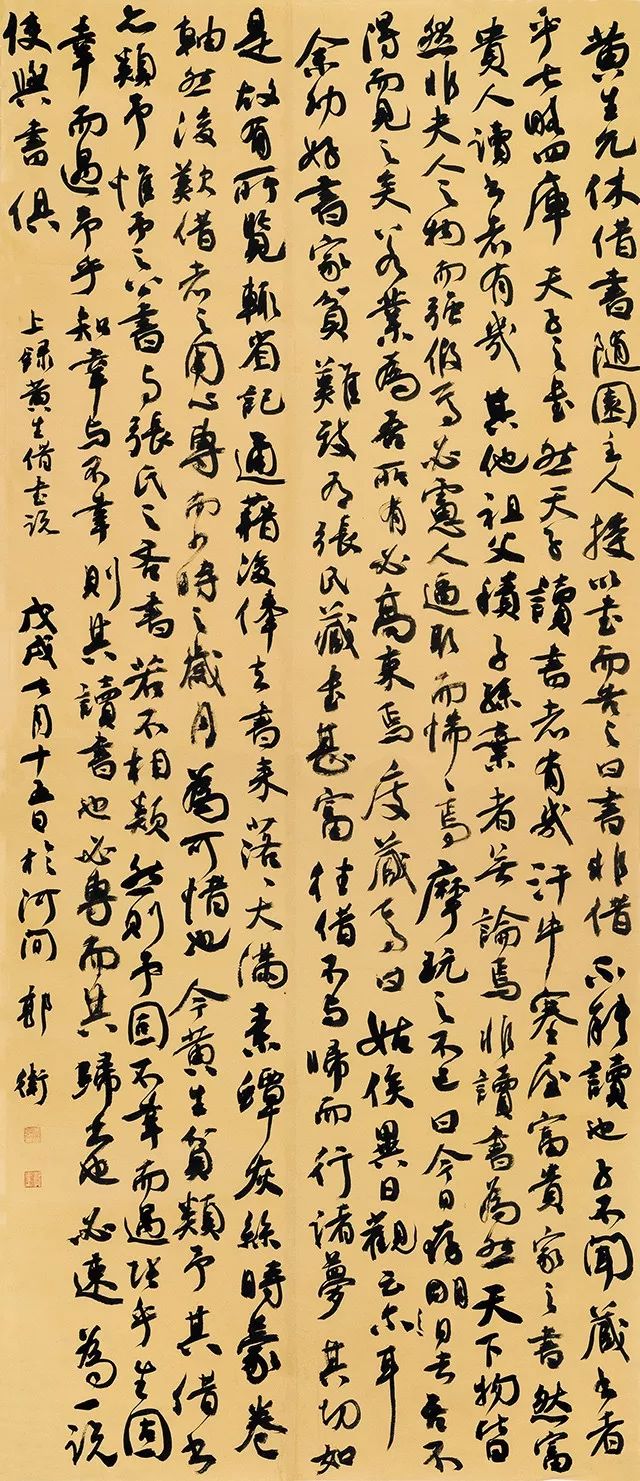 黄生允休借書隨園主人授以書而告之曰書非借不能讀也子不聞藏書者
乎七略四庫天子之書然天子讀書者有幾汗牛塞屋富貴家之書然富
貴人讀書者有幾其他祖父積子孫棄者無論焉非讀書為然天下物皆
然非夫人之物而强假焉必慮人逼取而惴惴焉摩玩之不已曰今日存明日去吾不
得而見之矣若業為吾所有必高束焉庋藏焉曰姑俟異日觀云尔耳
余幼好書家貧難致有張氏藏書甚富往借不与歸而行諸夢其切如
是故有所覽輒省記通籍後俸去書来落落大滿素蟫灰絲時蒙卷
軸然後歎借者之用心專而少時之歲月為可惜也今黄生貧類予其借書
亦類予惟予之公書与張氏之吝書若不相類然則予固不幸而遇張乎生固
幸而遇予乎知幸与不幸則其讀書也必專而其歸書也必速為一説
使與書俱
上録黄生借書説
戊戌七月十五日於河间 郭